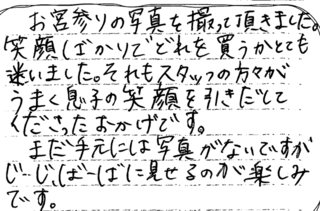 お宮参りの写真を撮って頂きました。
笑顔ばかりでどれを買うかとても
迷いました。それもスタッフの方々が
うまく息子の笑顔を引きだして
くださったおかげです。
まだ手元には写真がないですが
じーじ、ばーばに見せるのが楽しみ
です。